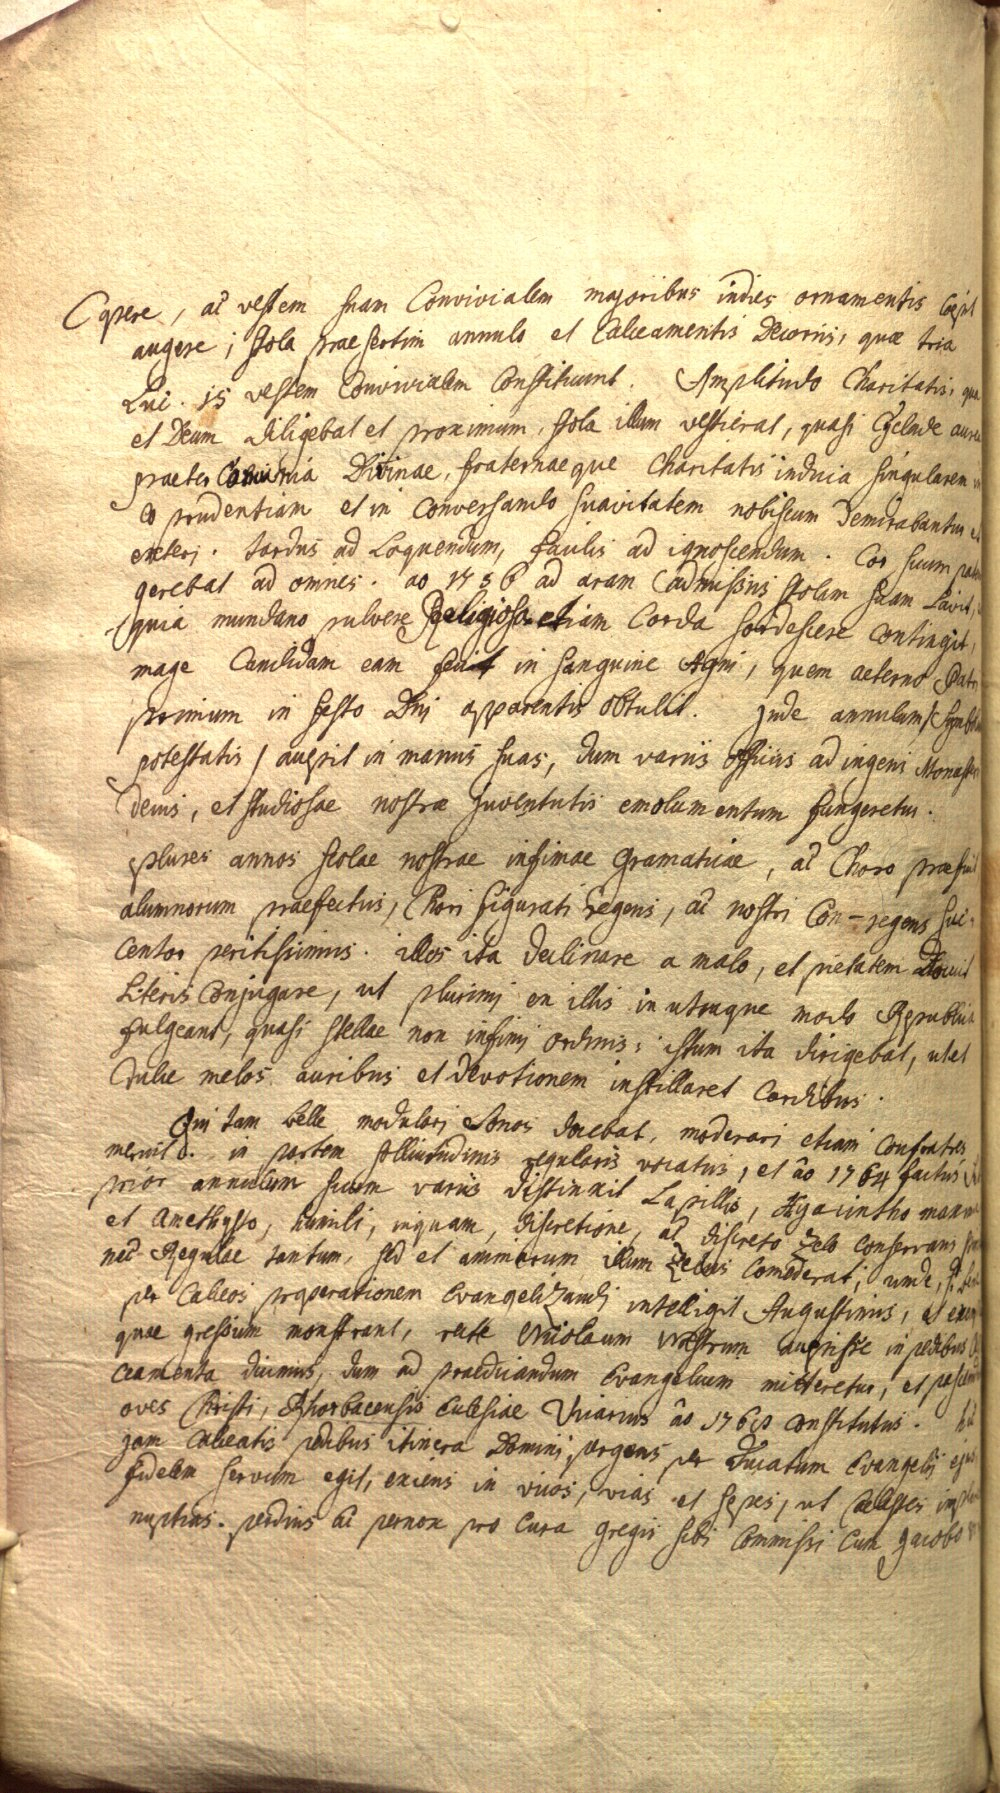 Capere, ac vestem suam Convivialem majoribus indies ornamentis Caepit
augere; stola praesertim annulo et Calceamentis Decorus, quae tria
Luc. 15 vestem Convivialem Constituunt. Amplitudo Charitatis, qua
et Deum diligebat et proximum, stola illum vestierat, quasi Cyclade aurea
praeter Divinae, fraternaeque Charitatis indicia singularem in
eo prudentiam et in Conversando suavitatem nobiscum demirabantur
exteri. tardus ad Loquendum, facilis ad ignoscendum. Cor suum
gerebat ad omnes. ao 1756 ad aram admissus stolam suam Lavit,
quia mundano pulvere Religiosa etiam Corda sordescere contingit,
mage Candidam eam fecit in sanguine Agni, quem aeterno Patri
primum in festo Dni apparentis obtulit. Inde annulum / Symbolum
potestatis / accepit in manus suas, dum variis officiis ad ingens Monasterii
decus, et studiosae nostrae Juventutis emolumentum fungeretur.
plures annos scolae nostrae infimae Gramaticae, ac Choro praefuit
alumnorum praefectus, Chori figurati Regens, ac nostri Con-regens
centor peritissimus. illos ita declinare a malo, et pietatem docuit
Literis Conjugare, ut plurimi ex illis in utraque modo Republica
fulgeant, quasi stellae non infimi ordinis; istum ita dirigebat, ut et
dulce melos auribus et devotionem instillaret Cordibus.
Qui tam belle modulari Sonos docebat, moderari etiam Confratres
meruit. in partem sollicitudinis regularis vocatus, et ao 1764 factus
prior annulum suum variis distinxit Lapillis, Hyacintho
et Amethysto, humili, inquam, discretione, ac discreto Zelo conservans
nec Regulae tantum, sed et animarum illum Zelus Comederat; unde, si
per Calceos praeparationem Evangelizandi intelligit Augustinus, et
quae gressum monstrant, recte Nicolaum Nostrum accepisse in pedibus
ceamenta dicimus, dum ad praedicandum Evangelium mitteretur, et
oves Christi, Ecclesiae Vicarius ao constitutus.
jam Calceatis pedibus itinera Domini pergens per Ducatum Evangelii
fidelem servum egit, exiens in vicos, vias et sepes, ut Caelestes
nuptias. perdius ac pernox pro Cura gregis sibi Commissi Cum Jacobo